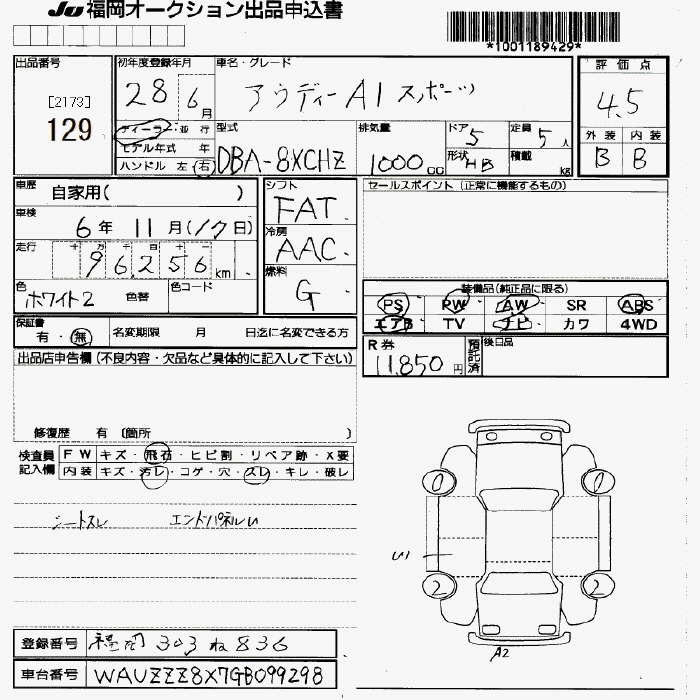 JU 福岡オークション出品申込書
*1001189429*
出品番号
[2173]
129
初年度登録年月
28 6月
車名・グレード
アウディーA1スポーツ
評価点
4.5
外装 内装
B B
ディーラー・並行
モデル年式 年
ハンドル 左 右
型式
DBA-8XCHZ
排気量
1000 cc
ドア 5
形状 HB
定員 5人
積載 kg
車歴
自家用( )
車検
6年 11月(17日)
走行
十 万 千 百 十 一
96,256 km
色
ホワイト2
色替
色コード
シフト
FAT
冷房
AAC
燃料
G
セールスポイント(正常に機能するもの)
装備品(純正品に限る)
PS PW AW SR ABS
エアB TV ナビ カワ 4WD
保証書
有・無
名変期限 月 日迄に名変できる方
R券
11,850円
預託済
後日品
出品店申告欄(不良内容・欠品など具体的に記入して下さい)
修復歴 有 (箇所 )
検査員記入欄
FW キズ・飛石・ヒビ割・リペア跡・X要
内装 キズ・汚レ・コゲ・穴・スレ・キレ・破レ
シートスレ エンドパネルU
0 0
U1
2 2
A2
登録番号 福岡 303 ね 836
車台番号 WAUZZZ8X7GB099298